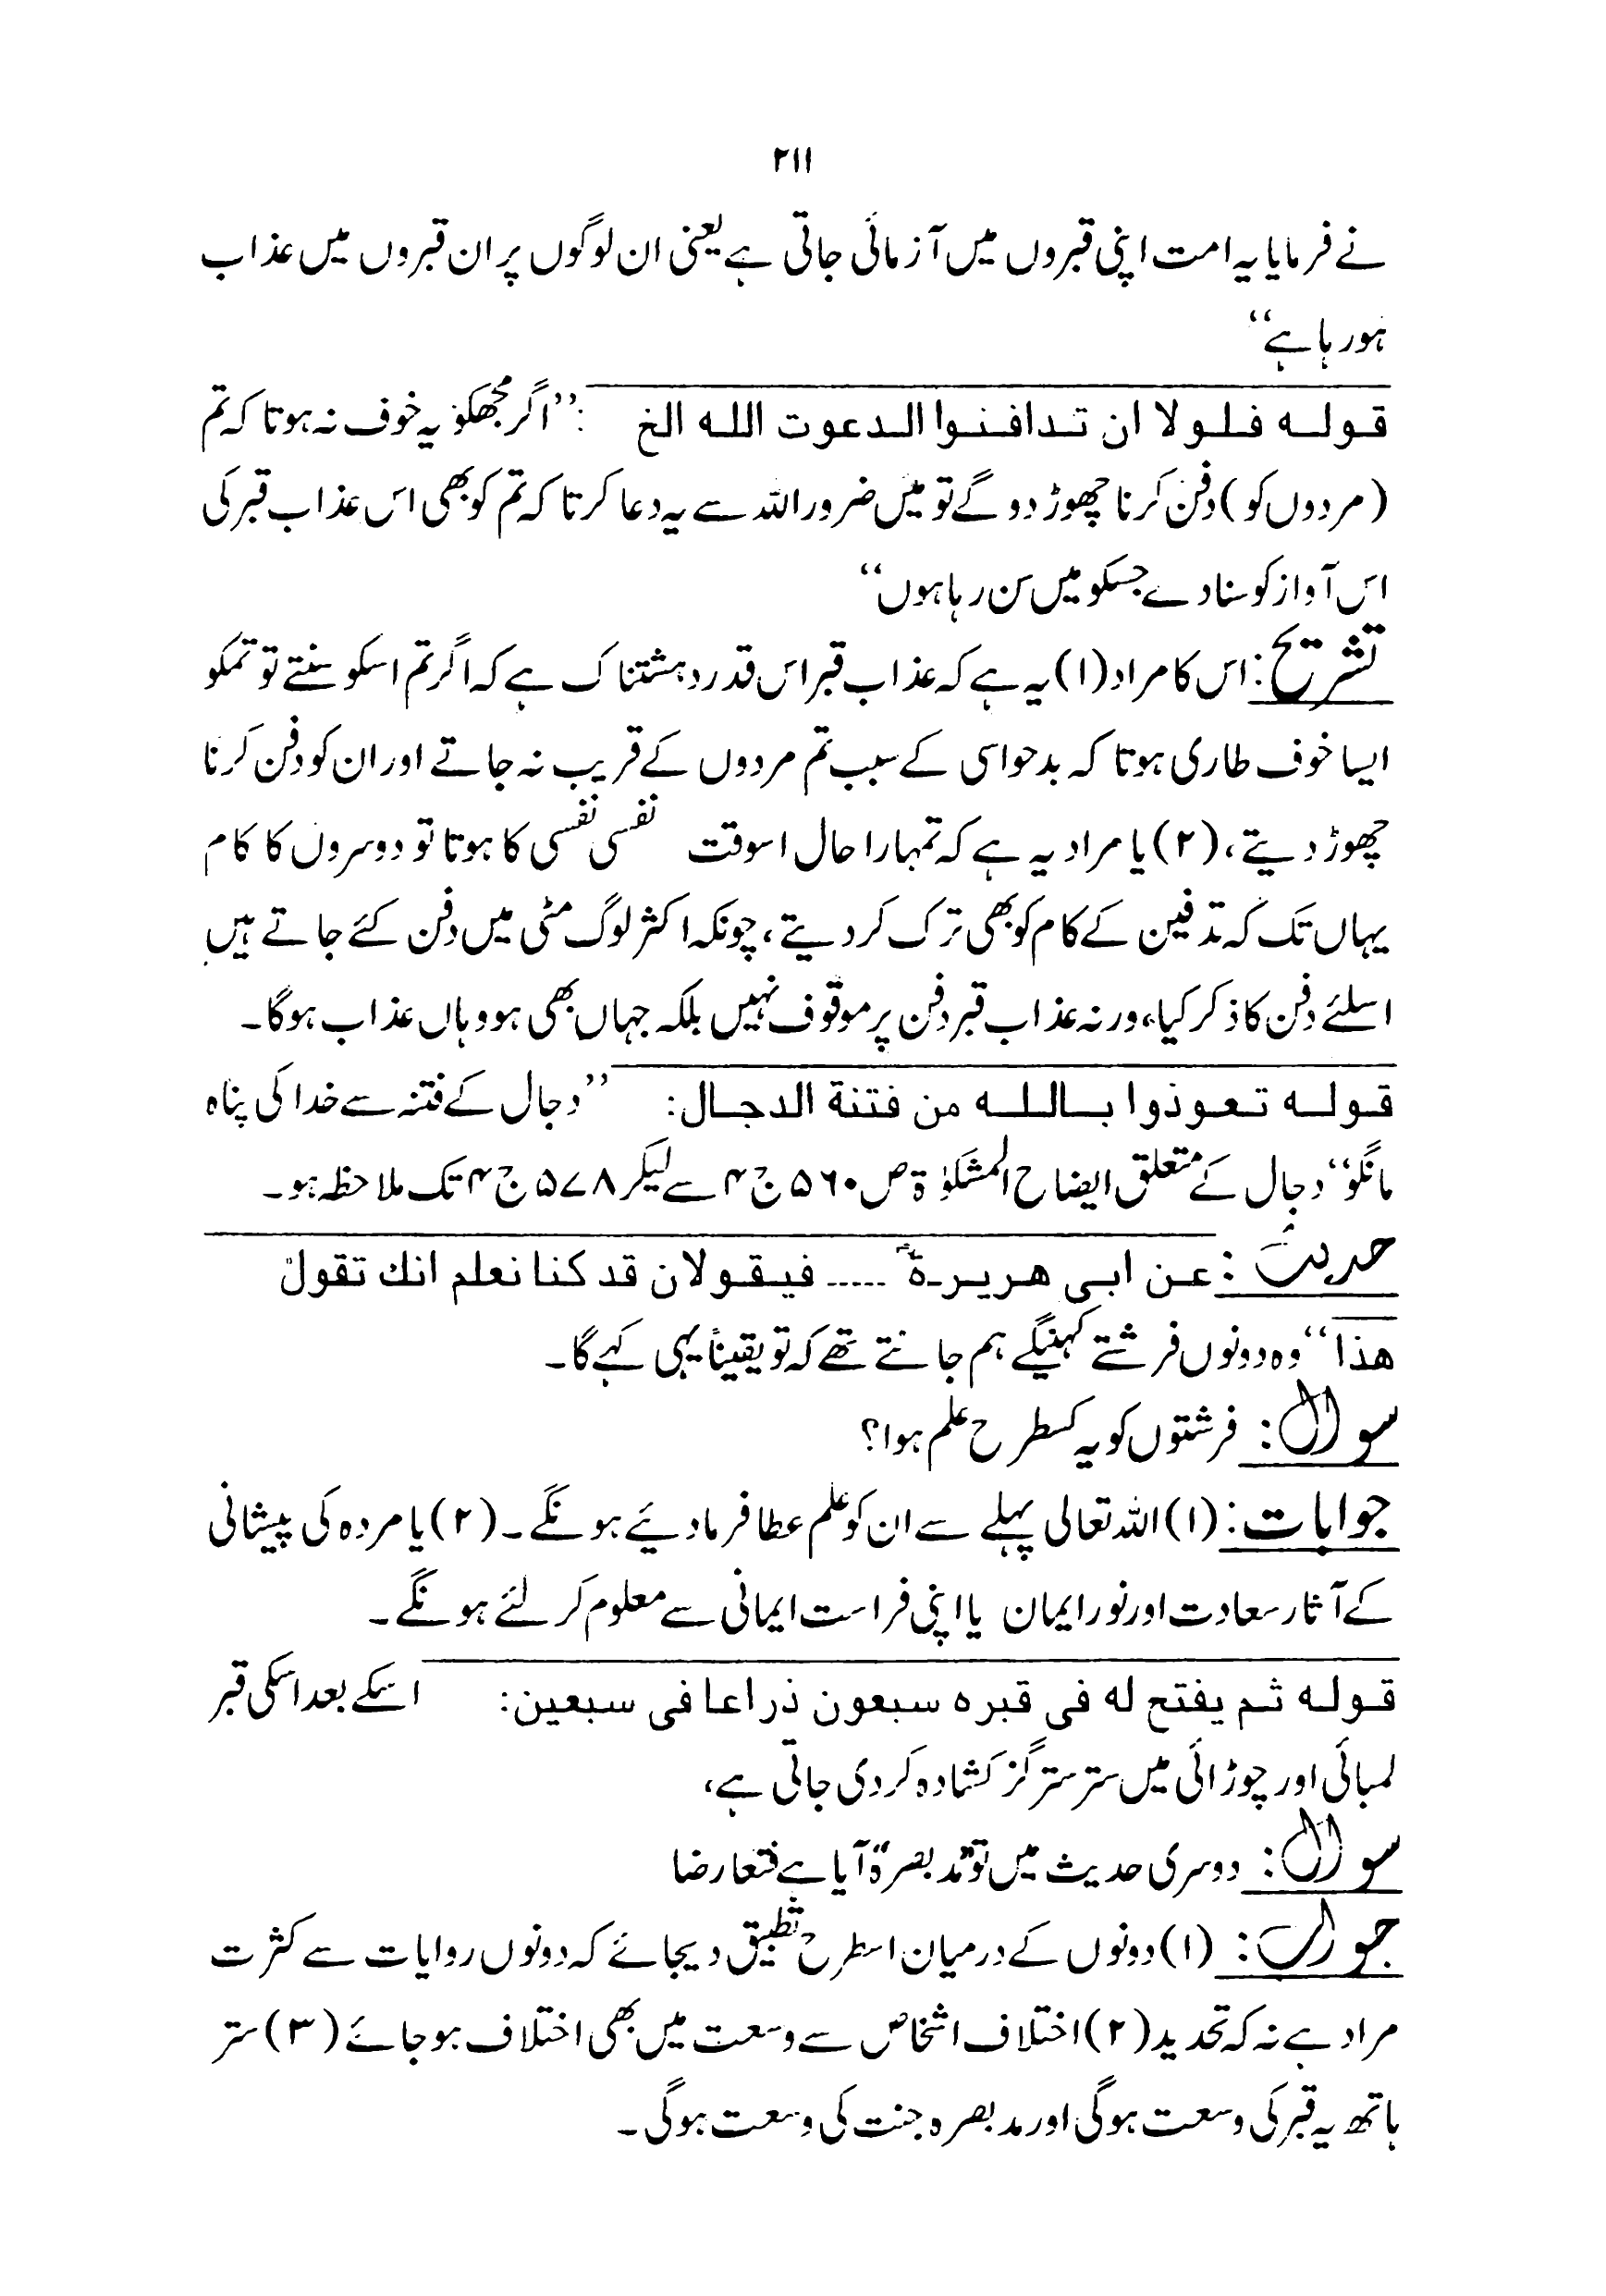 ۲۱۱
نے فرمایا یہ امت اپنی قبروں میں آزمائی جاتی ہے یعنی ان لوگوں پر ان قبروں میں عذاب
ہورہا ہے‘‘
قولہ فلولا ان تدافنوا الدعوت اللہ الخ :’’اگر مجھکو یہ خوف نہ ہوتا کہ تم
(مردوں کو) دفن کرنا چھوڑ دو گے تو میں ضرور اللہ سے یہ دعا کرتا کہ تم کو بھی اس عذاب قبر کی
اس آواز کو سنادے جسکو میں سن رہا ہوں‘‘
تشریح: اس کا مراد (۱) یہ ہے کہ عذاب قبر اس قدر دہشتناک ہے کہ اگر تم اسکو سنتے تو تمکو
ایسا خوف طاری ہوتا کہ بدحواسی کے سبب تم مردوں کے قریب نہ جاتے اور ان کو دفن کرنا
چھوڑ دیتے، (۲) یا مراد یہ ہے کہ تمہارا حال اسوقت نفسی نفسی کا ہوتا تو دوسروں کا کام
یہاں تک کہ تدفین کے کام کو بھی ترک کر دیتے، چونکہ اکثر لوگ مٹی میں دفن کئے جاتے ہیں
اسلئے دفن کا ذکر کیا، ورنہ عذاب قبر دفن پر موقوف نہیں بلکہ جہاں بھی ہو وہاں عذاب ہوگا۔
قولہ تعوذوا باللہ من فتنة الدجال: ’’دجال کے فتنہ سے خدا کی پناہ
مانگو‘‘ دجال کے متعلق ایضاح المشکوٰۃ ص ۵۶۰ ج ۴ سے لیکر ۵۷۸ ج ۴ تک ملاحظہ ہو۔
حدیث: عن ابی ھریرۃؓ ..... فیقولان قد کنا نعلم انك تقول
ھذا‘‘ وہ دونوں فرشتے کہینگے ہم جانتے تھے کہ تو یقیناً یہی کہے گا۔
سوال: فرشتوں کو یہ کسطرح علم ہوا؟
جوابات: (۱) اللہ تعالی پہلے سے ان کو علم عطا فرمادیئے ہونگے۔ (۲) یا مردہ کی پیشانی
کے آثار سعادت اور نور ایمان یا اپنی فراست ایمانی سے معلوم کرلئے ہونگے۔
قولہ ثم یفتح لہ فی قبرہ سبعون ذراعا فی سبعین: اسکے بعد اسکی قبر
لمبائی اور چوڑائی میں ستر ستر گز کشادہ کردی جاتی ہے،
سوال: دوسری حدیث میں تو ’’مد بصرۃ‘‘ آیا ہے فتعارضا
جواب: (۱) دونوں کے درمیان اسطرح تطبیق دیجائے کہ دونوں روایات سے کثرت
مراد ہے نہ کہ تحدید (۲) اختلاف اشخاص سے وسعت میں بھی اختلاف ہوجائے (۳) ستر
ہاتھ یہ قبر کی وسعت ہوگی اور مد بصرہ جنت کی وسعت ہوگی۔